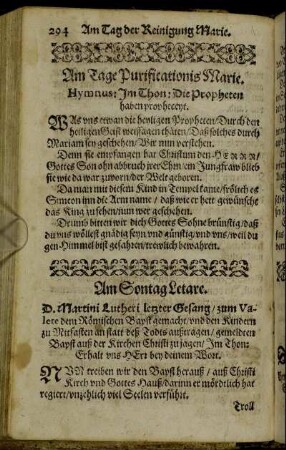 294 Am Tag der Reinigung Marie.
Am Tage Purificationis Marie.
Hymnus: Im Thon: Die Propheten
haben propheceyt.
WAs vns etwan die heyligen Propheten/ Durch den
heiligen Geist weissagen thäten/ Daß solches durch
Mariam sey geschehen/ Wir nun verstehen.
Denn sie empfangen hat Christum den HERRN/
Gottes Son ohn abbruch jrer Ehren/ Jungfraw blieb
sie wie da war zuvorn/ der Welt geboren.
Da man mit diesem Kind in Tempel kame/ frölich es
Simeon inn die Arm name/ daß wie er hett gewünsche
das King zu sehen/ nun wer geschehen.
Drumb bitten wir dich Gottes Sohne brünstig/ daß
du vns wöllest gnädig seyn vnd günstig/ vnd vns/ weil du
gen Himmel bist gefahren/ trewlich bewahren.
Am Sontag Letare.
D. Martini Lutheri letzter Gesang/ zum Va-
lete dem Römischen Bapst gemacht/ vnd den Kindern
zu Mitfasten an statt deß Todts außtragen/ gemeldten
Bapst auß der Kirchen Christi zu jagen/ Im Thon:
Erhalt vns HErr bey deinem Wort.
NVn treiben wir den Bapst herauß/ auß Christi
Kirch vnd Gottes Hauß/ darinn er mördtlich hat
regiert/ vnzehlich viel Seelen verführt.
Troll